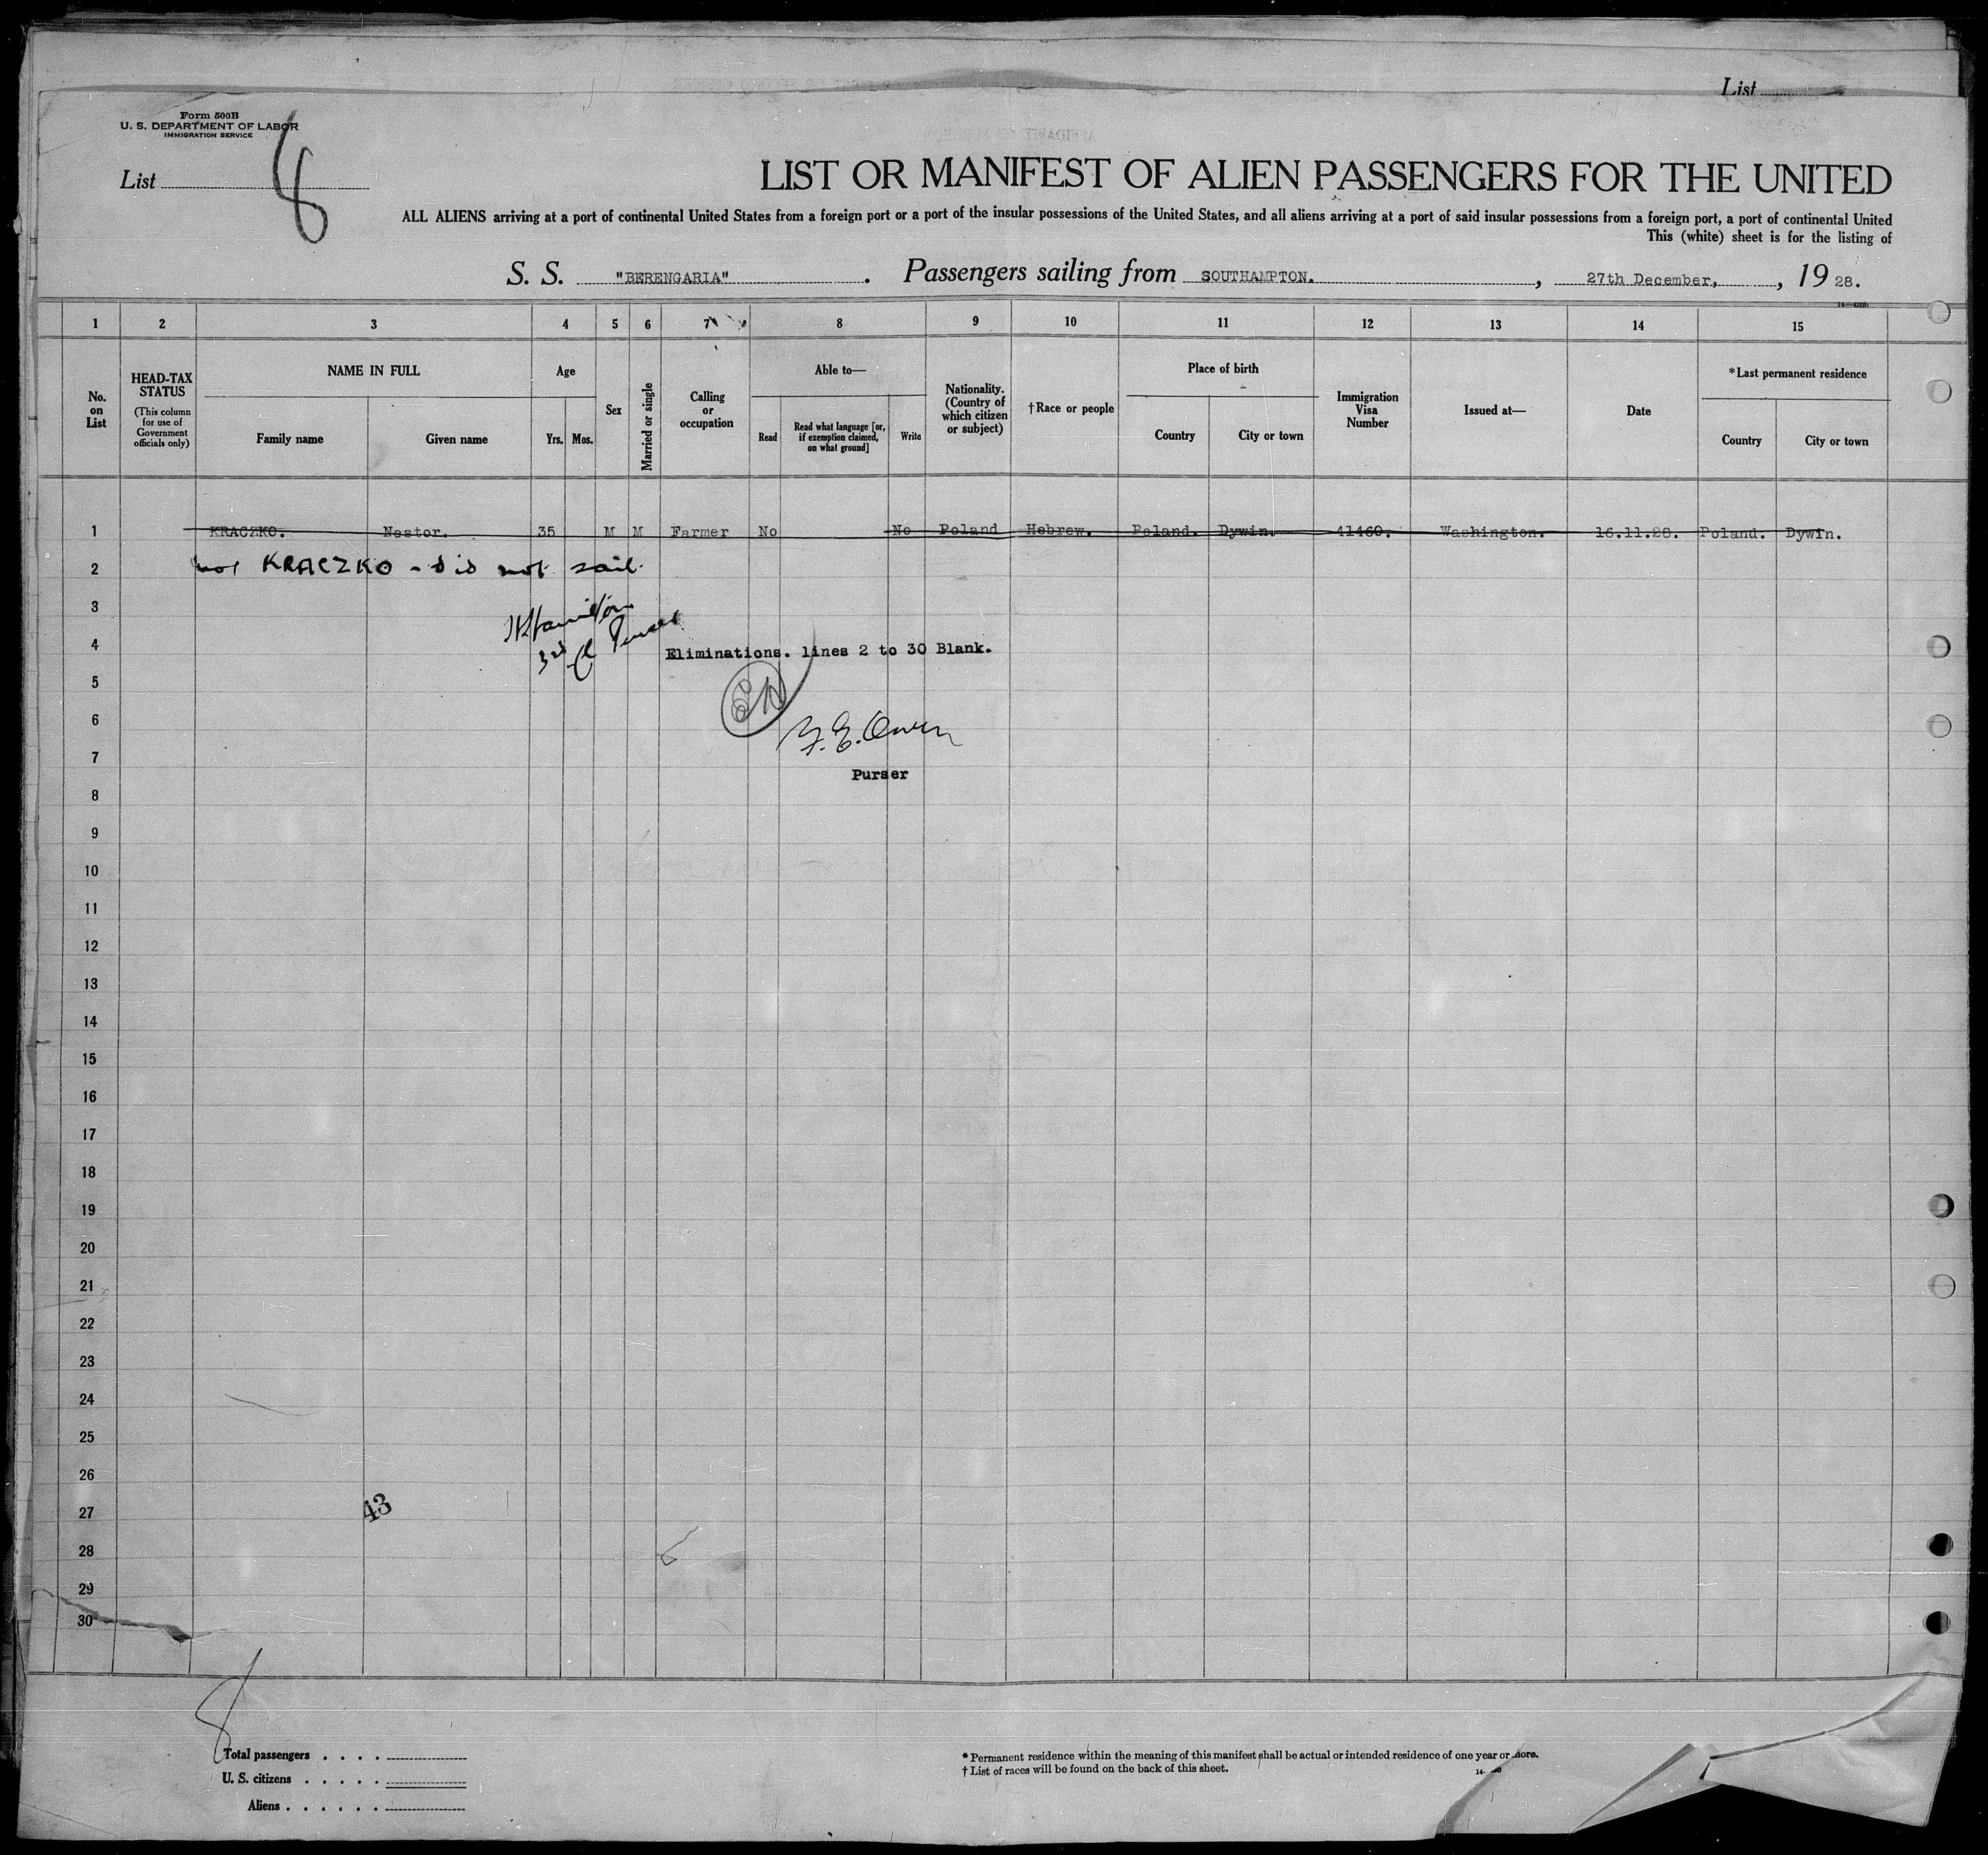 List
Form 500B
U. S. DEPARTMENT OF LABOR
IMMIGRATION SERVICE
List 8
LIST OR MANIFEST OF ALIEN PASSENGERS FOR THE UNITED
ALL ALIENS arriving at a port of continental United States from a foreign port or a port of the insular possessions of the United States, and all aliens arriving at a port of said insular possessions from a foreign port, a port of continental United
This (white) sheet is for the listing of
S. S. "BERENGARIA" . Passengers sailing from SOUTHAMPTON. , 27th December, , 19 28.
1 2 3 4 5 6 7 8 9 10 11 12 13 14 15
No. on List
HEAD-TAX STATUS
(This column for use of Government officials only)
NAME IN FULL
Family name Given name
Age
Yrs. Mos.
Sex
Married or single
Calling or occupation
Able to—
Read
Read what language [or, if exemption claimed, on what ground]
Write
Nationality. (Country of which citizen or subject)
†Race or people
Place of birth
Country City or town
Immigration Visa Number
Issued at—
Date
*Last permanent residence
Country City or town
1 KRACZKO. Nestor. 35 M M Farmer No No Poland Hebrew. Poland. Dywin. 41460. Washington. 16.11.28. Poland. Dywin.
2 KRACZKO - did not sail
3
4 Eliminations. lines 2 to 30 Blank.
5
6 Owen
7
Purser
8
9
10
11
12
13
14
15
16
17
18
19
20
21
22
23
24
25
26
27 43
28
29
30
8
Total passengers . . . .
U. S. citizens . . . . .
Aliens . . . . . .
* Permanent residence within the meaning of this manifest shall be actual or intended residence of one year or more.
† List of races will be found on the back of this sheet.